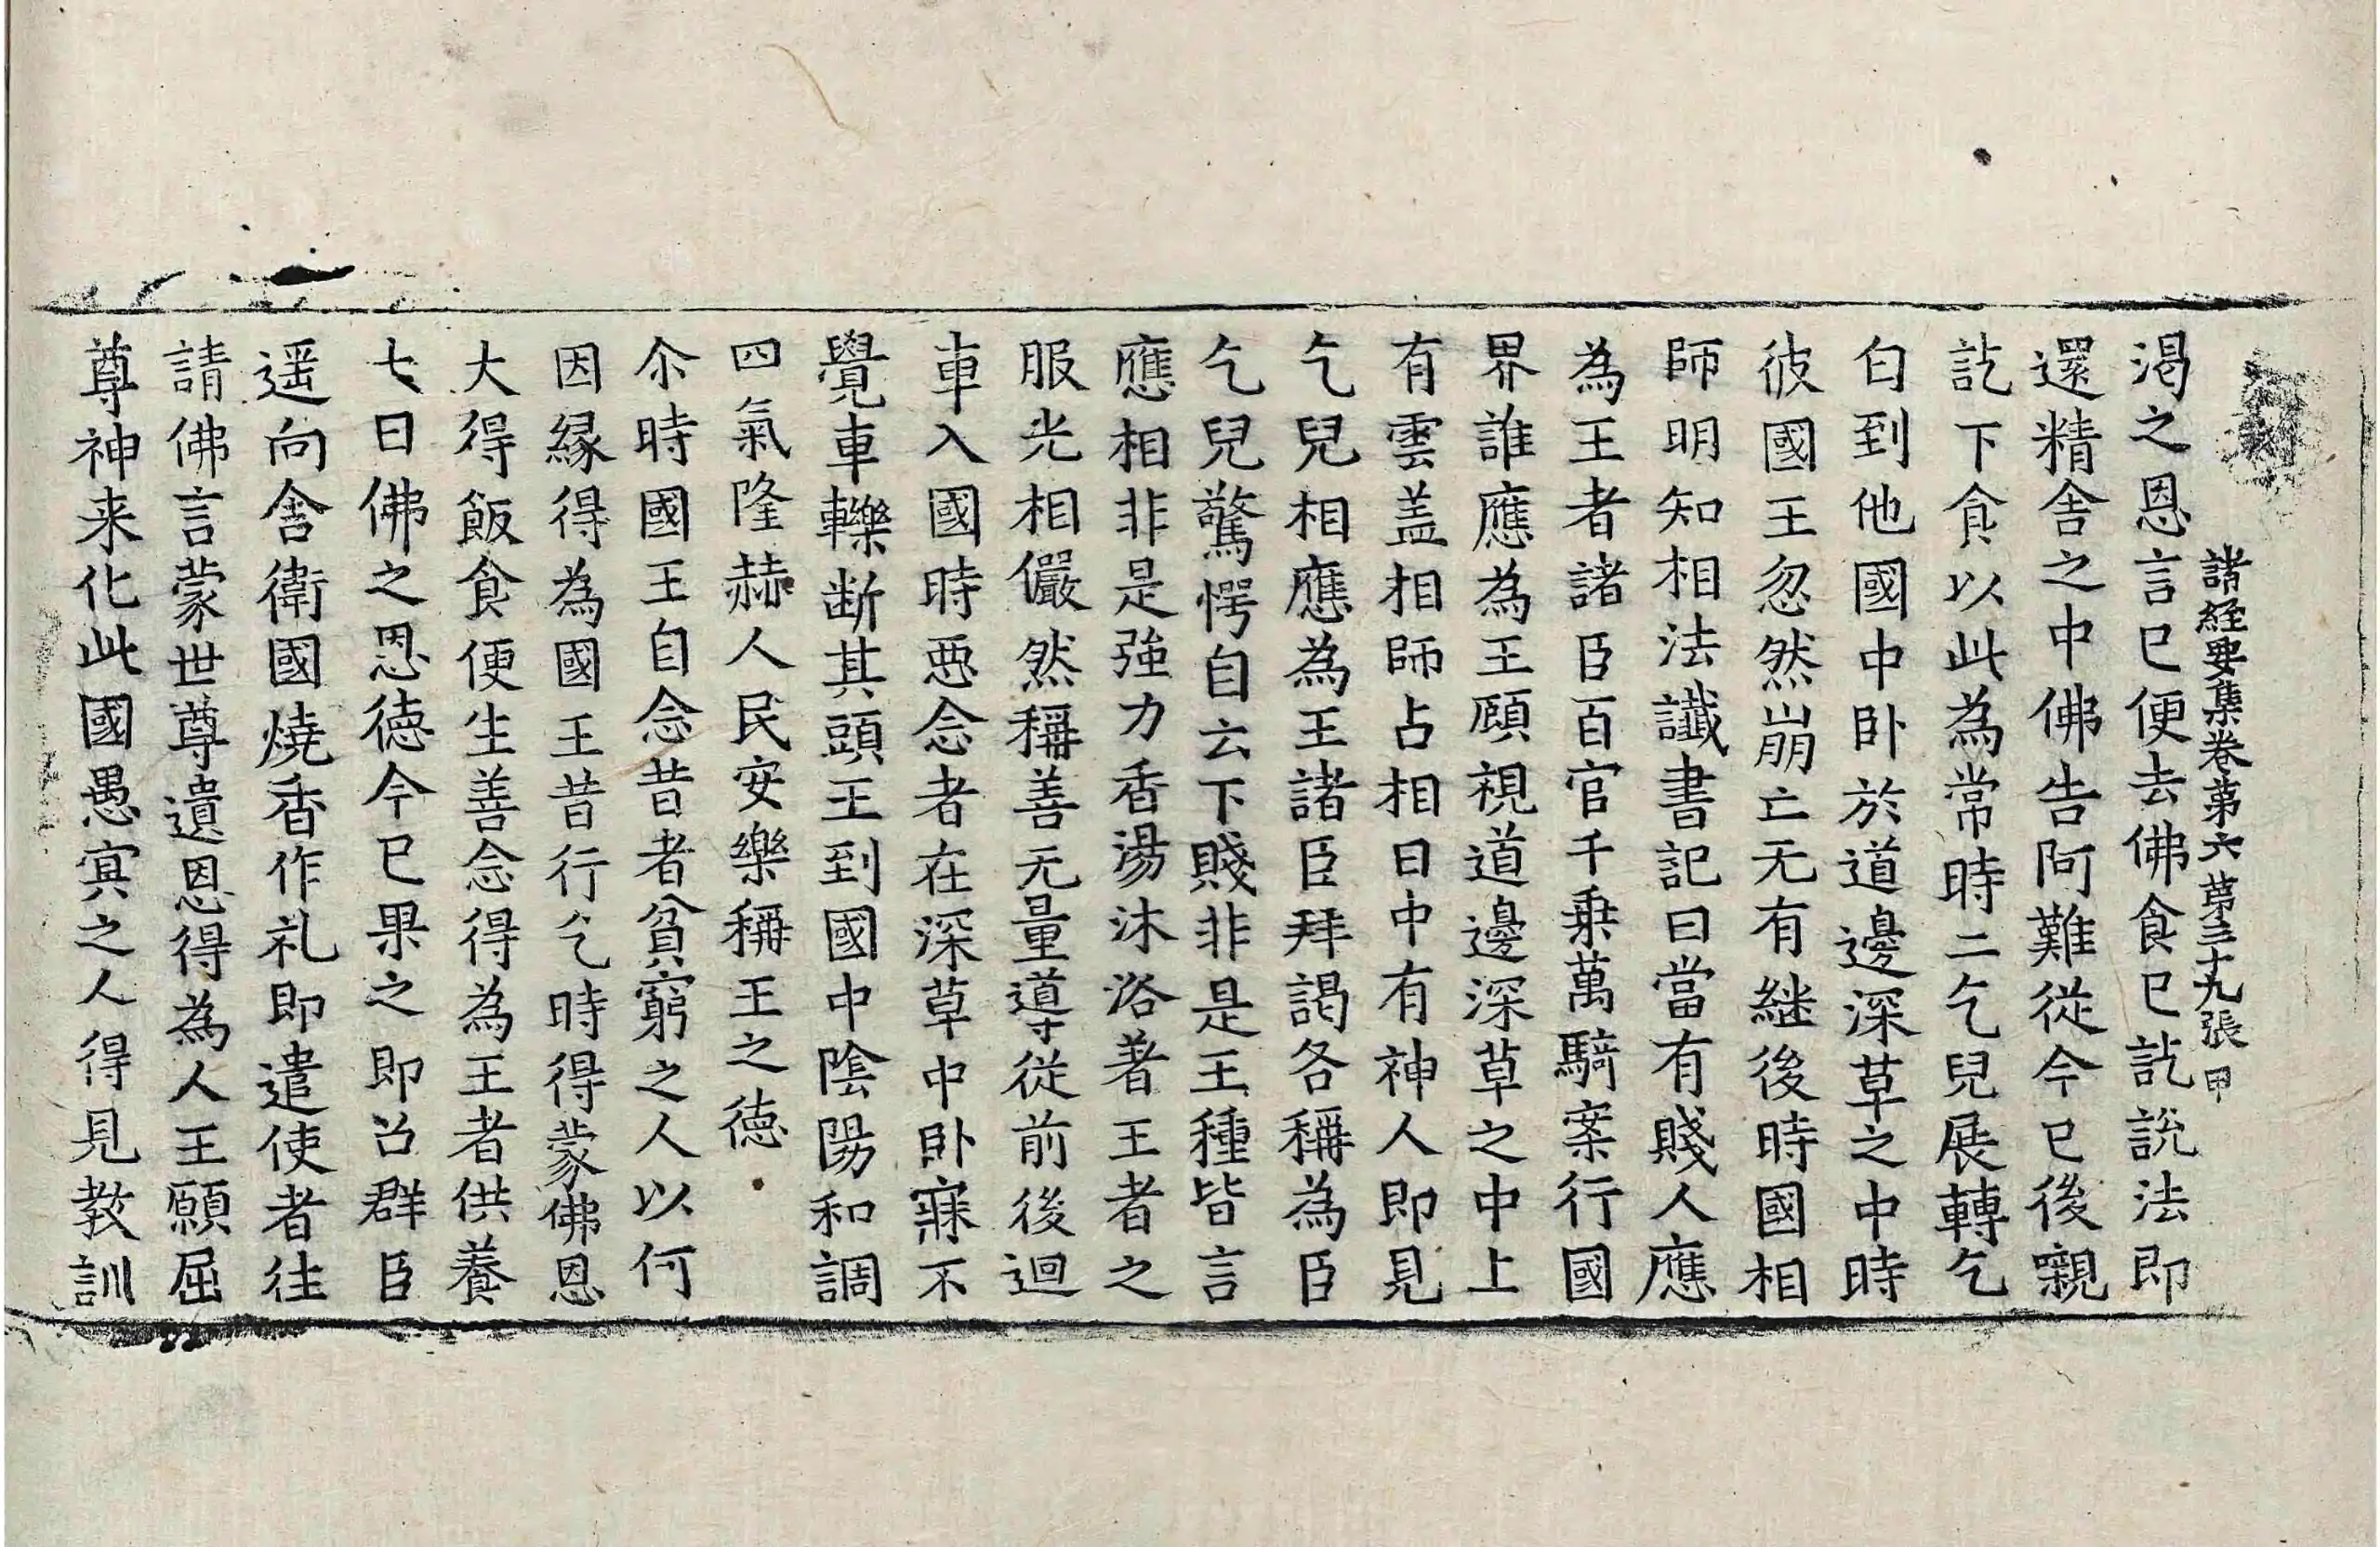 諸經要集卷第六 第三十九張 甲
渴之恩言已便去佛食已訖說法即
還精舍之中佛告阿難從今已後嚫
訖下食以此為常時二乞兒展轉乞
匃到他國中卧於道邊深草之中時
彼國王忽然崩亡无有継後時國相
師明知相法讖書記曰當有賤人應
為王者諸臣百官千乗萬騎案行國
界誰應為王顧視道邊深草之中上
有雲盖相師占相曰中有神人即見
乞兒相應為王諸臣拜謁各稱為臣
乞兒驚愕自云下賤非是王種皆言
應相非是強力香湯沐浴著王者之
服光相儼然稱善无量導從前後迴
車入國時惡念者在深草中卧寐不
覺車轢断其頭王到國中陰陽和調
四氣隆赫人民安樂稱王之德
尒時國王自念昔者貧窮之人以何
因緣得為國王昔行乞時得蒙佛恩
大得飯食便生善念得為王者供養
七日佛之恩德今已果之即召群臣
遥向舍衛國燒香作礼即遣使者往
請佛言蒙世尊遺恩得為人王願屈
尊神来化此國愚冥之人得見教訓